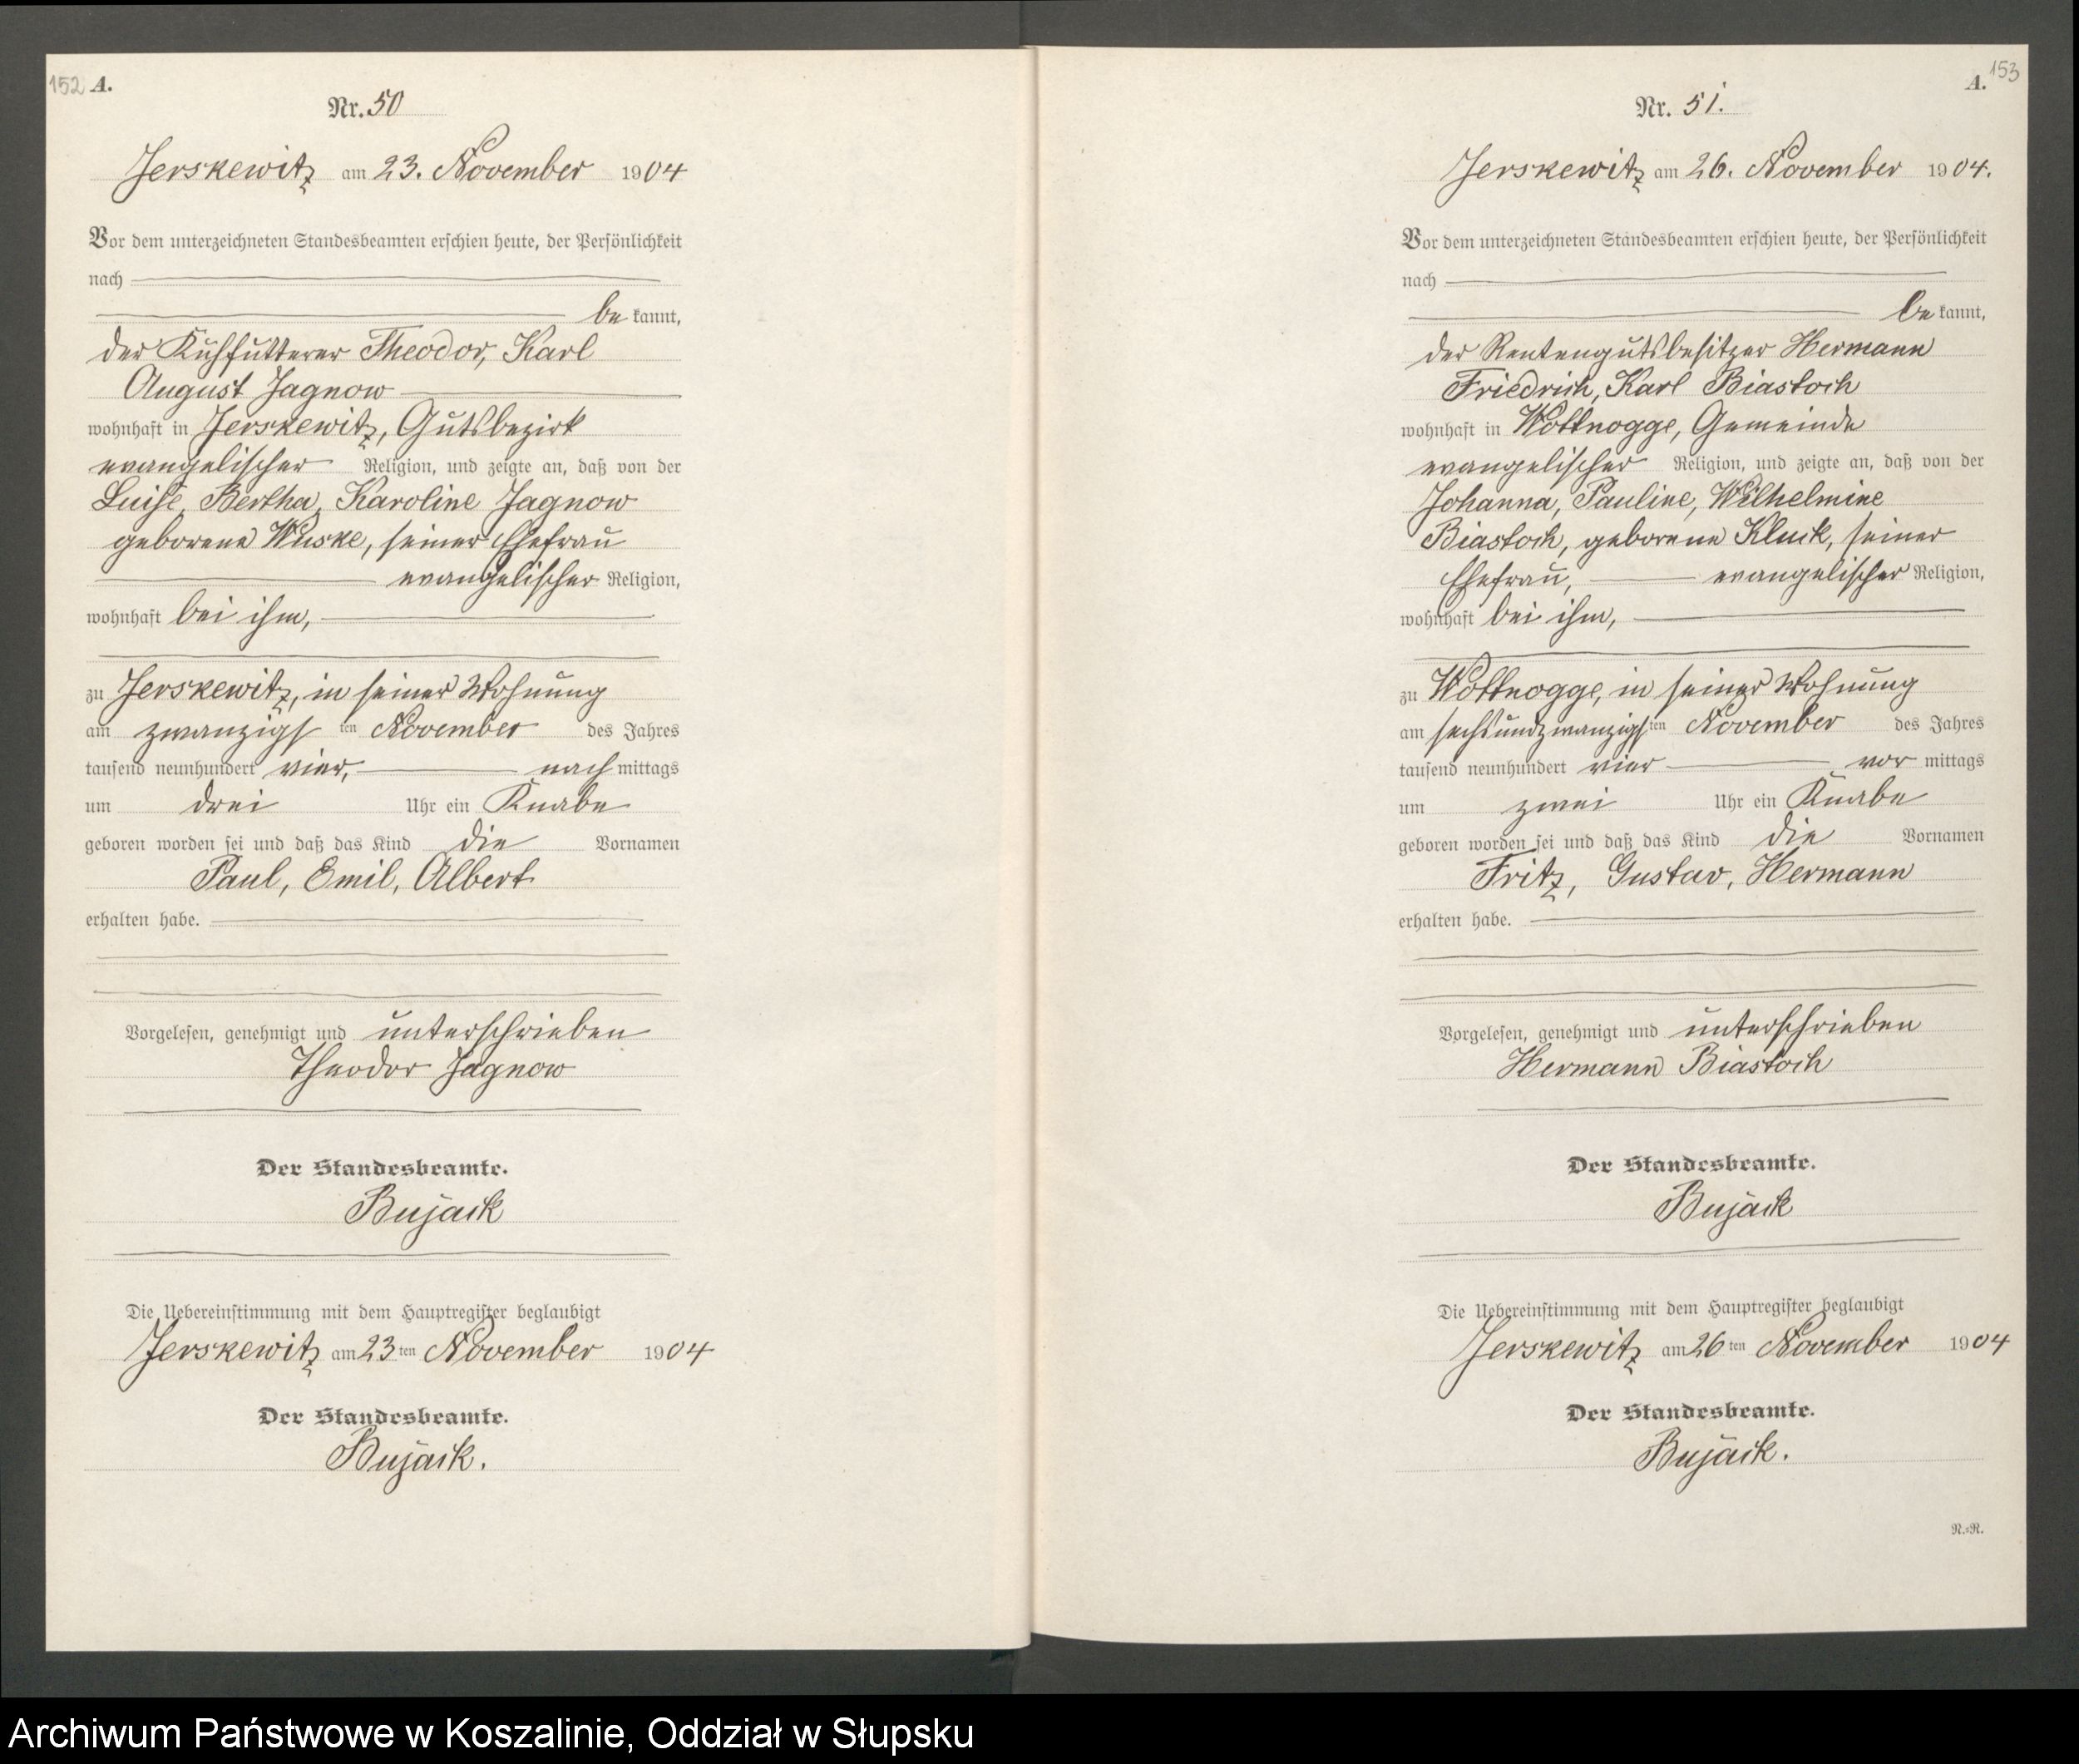 152 A.
Nr. 50
Jerskewitz am 23. November 1904
Vor dem unterzeichneten Standesbeamten erschien heute, der Persönlichkeit
nach
be kannt,
der Kuhfutterer Theodor, Karl
August Jagnow
wohnhaft in Jerskewitz, Gutsbezirk
evangelischer Religion, und zeigte an, daß von der
Luise, Bertha, Karoline Jagnow
geborene Wuske, seiner Ehefrau
evangelischer Religion,
wohnhaft bei ihm,
zu Jerskewitz, in seiner Wohnung
am zwanzigs ten November des Jahres
tausend neunhundert vier, nach mittags
um drei Uhr ein Knabe
geboren worden sei und daß das Kind die Vornamen
Paul, Emil, Albert
erhalten habe.
Vorgelesen, genehmigt und unterschrieben
Theodor Jagnow
Der Standesbeamte.
Bujack
Die Uebereinstimmung mit dem Hauptregister beglaubigt
Jerskewitz am 23 ten November 1904
Der Standesbeamte.
Bujack.
A. 153
Nr. 51.
Jerskewitz am 26. November 1904.
Vor dem unterzeichneten Standesbeamten erschien heute, der Persönlichkeit
nach
be kannt,
der Rentengutsbesitzer Hermann
Friedrich, Karl Biastoch
wohnhaft in Wottnogge, Gemeinde
evangelischer Religion, und zeigte an, daß von der
Johanna, Pauline, Wilhelmine
Biastoch, geborene Kluck, seiner
Ehefrau, evangelischer Religion,
wohnhaft bei ihm,
zu Wottnogge, in seiner Wohnung
am sechsundzwanzigs ten November des Jahres
tausend neunhundert vier vor mittags
um zwei Uhr ein Knabe
geboren worden sei und daß das Kind die Vornamen
Fritz, Gustav, Hermann
erhalten habe.
Vorgelesen, genehmigt und unterschrieben
Hermann Biastoch
Der Standesbeamte.
Bujack
Die Uebereinstimmung mit dem Hauptregister beglaubigt
Jerskewitz am 26 ten November 1904
Der Standesbeamte.
Bujack.
N.=R.
Archiwum Państwowe w Koszalinie, Oddział w Słupsku